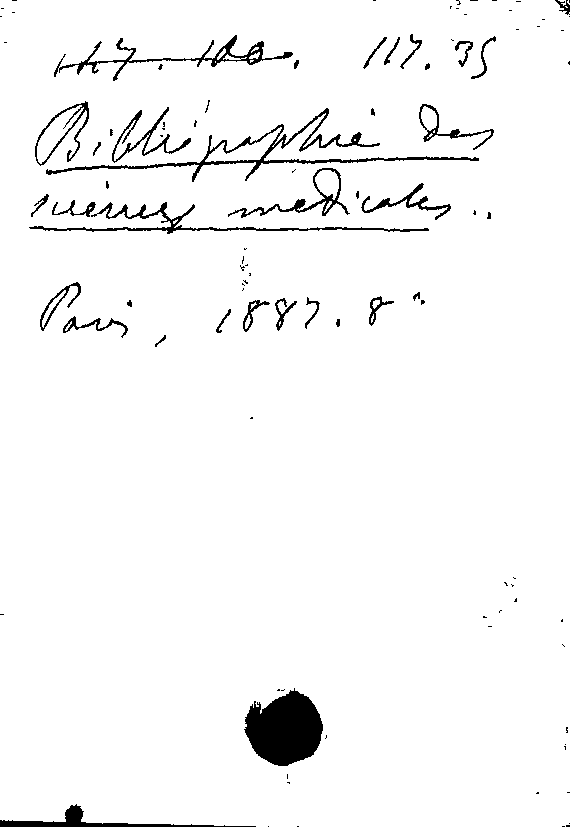 117. 100. 117. 35
Bibliographie des
sciences médicales..
Paris, 1887. 8°.